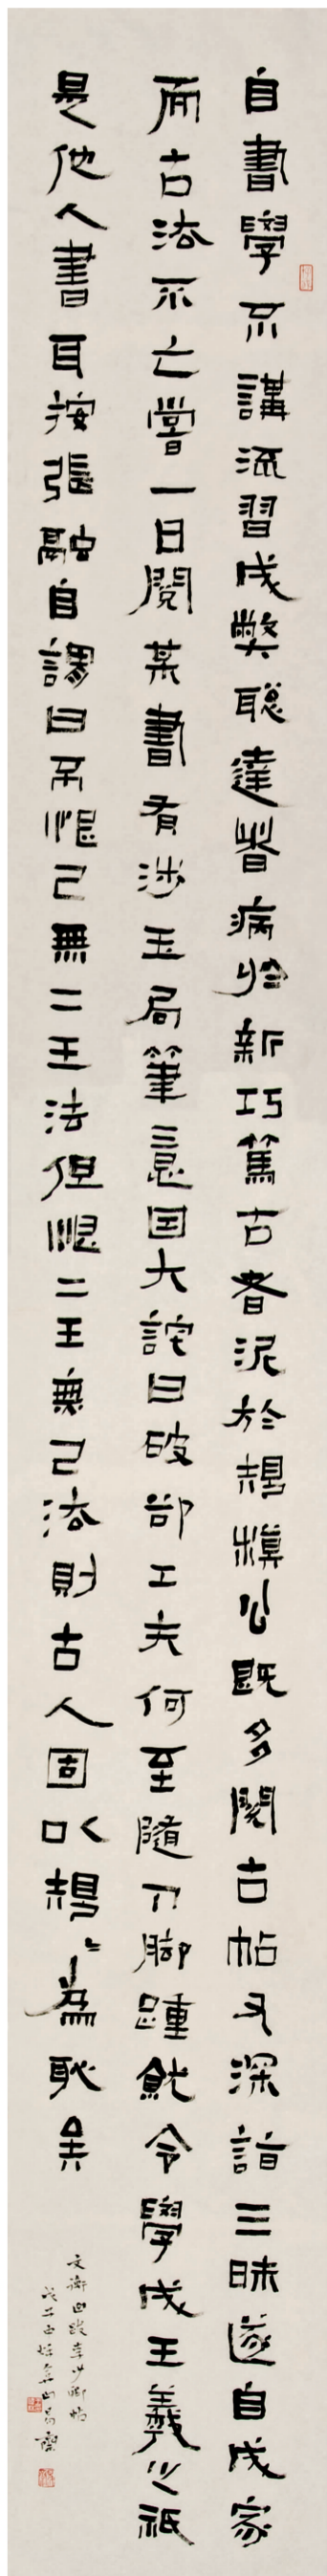 自書學不講流習成弊聰達者病於新巧篤古者泥於規模公既多閱古帖又深詣三昧遂自成家
而古法不亡嘗一日閱某書有涉玉局筆意因大詫曰破卻工夫何至隨人腳踵就令學成王羲之祇
是他人書耳按張融自謂曰不恨己無二王法但恨二王無己法則古人固以規〻為恥矣
文衡山跋李少卿帖